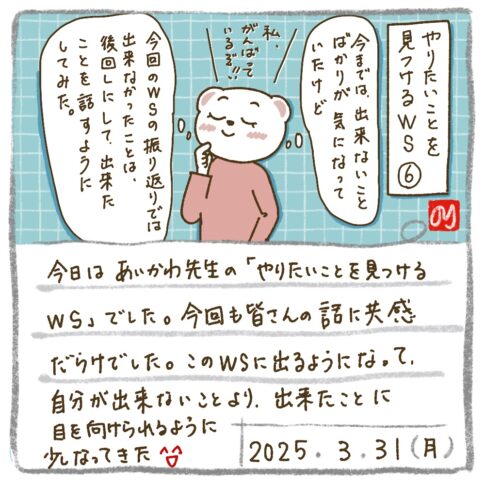 やりたいことを
見つけるWS⑥
今までは、出来ないこと
ばかりが気になって
いたけど
私、
がんばって
いるぞ!!
今回のWSの振り返りでは
出来なかったことは、
後回しにして、出来た
ことを話すように
してみた。
今日はあいかわ先生の「やりたいことを見つける
WS」でした。今回も皆さんの話に共感
だらけでした。このWSに出るようになって、
自分が出来ないことより、出来たことに
目を向けられるように
少しなってきた
2025.3.31(月)